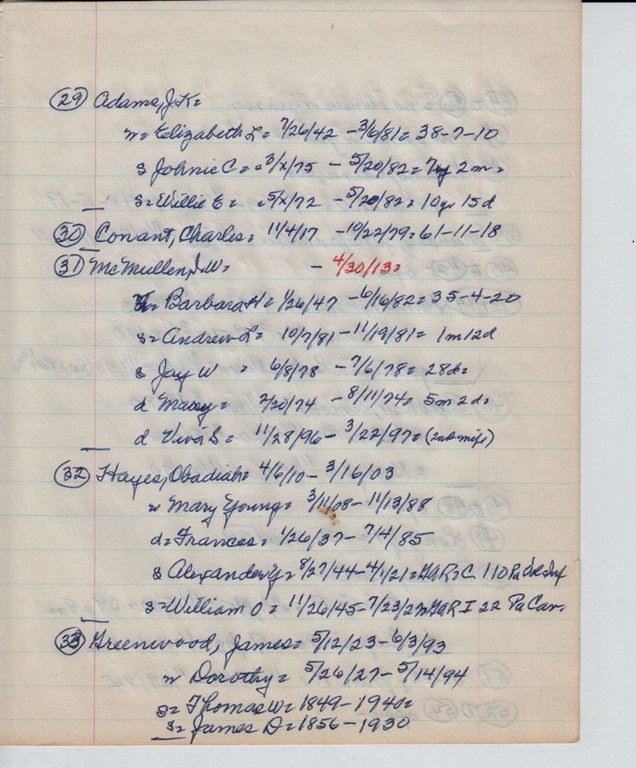 (29) Adams, J.K=
w= Elizabeth L= 7/26/42 - 3/6/81= 38-7-10
s Johnie C= 3/x/75 - 5/20/82= 7y 2m=
s= Willie E= 5/x/72 - 5/20/82= 10ys 15d
(30) Conant, Charles= 11/4/17 - 10/22/79= 61-11-18
(31) McMullen, J.W= - 4/30/13=
w= Barbara H= 1/26/47 - 6/16/82= 35-4-20
s= Andrew L= 10/7/81 - 11/19/81= 1m12d
s Jay W = 6/8/78 - 7/6/78= 28d=
d = - 8/11/74= 5m 2d=
d Viva S= 11/28/96 - 3/22/97= (2nd wife)
(32) Hayes, Obadiah= 4/6/10 - 3/16/03
w Mary Young= 3/11/08 - 11/13/88
d= Frances= 1/26/37 - 7/4/85
s Alexander Y= 8/27/44 - 4/1/21= GAR= C 110 Pa Vol Inf
s= William O= 11/26/45 - 7/23/27= GAR I 22 Pa Cav.
(33) Greenwood, James= 5/12/23 - 6/3/93
w Dorothy= 5/26/27 - 5/14/94
s= Thomas W= 1849 - 1940=
s= James D= 1856 - 1930